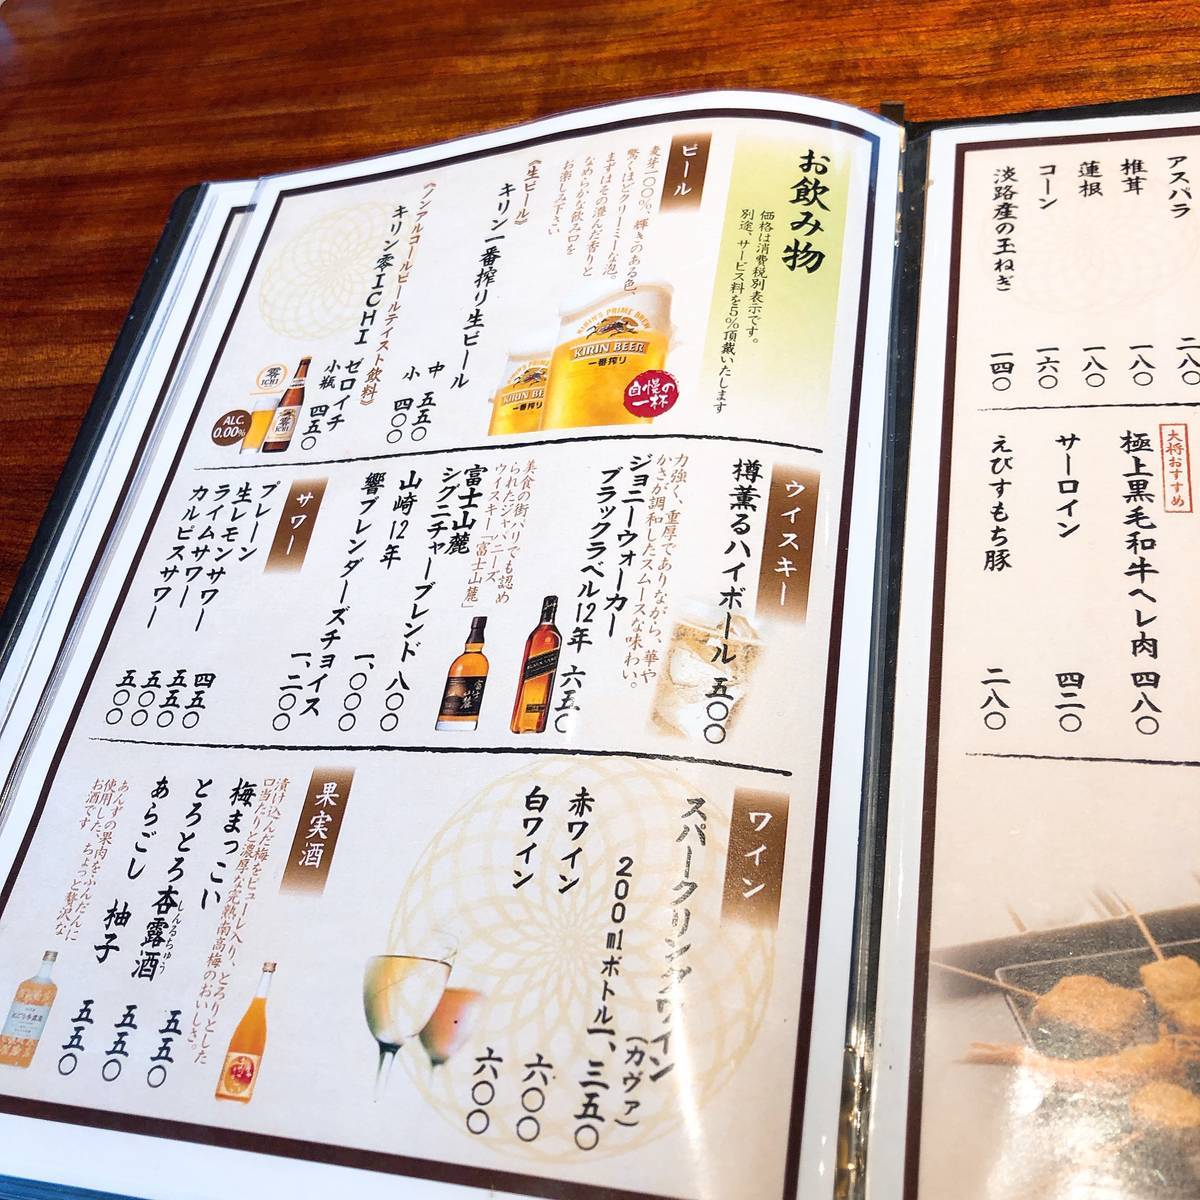 お飲み物
価格は消費税別表示です。
別途、サービス料を5%頂戴いたします
ビール
麦芽一〇〇%、輝きのある色、
驚くほどクリーミーな泡。
まずはその澄んだ香りと
なめらかな飲み口を
お楽しみ下さい
《生ビール》
キリン一番搾り生ビール
中 五五〇
小 四〇〇
《ノンアルコールビールテイスト飲料》
キリン零ICHI
ゼロイチ
小瓶 四五〇
KIRIN'S PRIME BREW
KIRIN BEER
一番搾り
自慢の
一杯
零
ICHI
ALC.
0.00%
ウイスキー
樽薫るハイボール 五〇〇
力強く、重厚でありながら、華や
かさが調和したスムースな味わい。
ジョニーウォーカー
ブラックラベル12年 六五〇
美食の街パリでも認め
られたジャパニーズ
ウイスキー「富士山麓」
富士山麓
シグニチャーブレンド 八〇〇
山崎12年 一、〇〇〇
響ブレンダーズチョイス 一、二〇〇
サワー
プレーン 四五〇
生レモンサワー 五五〇
ライムサワー 五〇〇
カルピスサワー 五〇〇
ワイン
スパークリングワイン
(カヴァ)
200mlボトル 一、三五〇
赤ワイン 六〇〇
白ワイン 六〇〇
果実酒
漬け込んだ梅をピューレ入り、とろりとした
口当たりと濃厚な完熟南高梅のおいしさ。
梅まっこい 五五〇
とろとろ杏露酒 五五〇
しんるちゅう
あらごし 柚子 五五〇
あんずの果肉をふんだんに
使用した、ちょっと贅沢な
お酒です
アスパラ 二八〇
椎茸 一八〇
蓮根 一八〇
コーン 一六〇
淡路産の玉ねぎ 一四〇
大将おすすめ
極上黒毛和牛ヘレ肉 四八〇
サーロイン 四二〇
えびすもち豚 二八〇